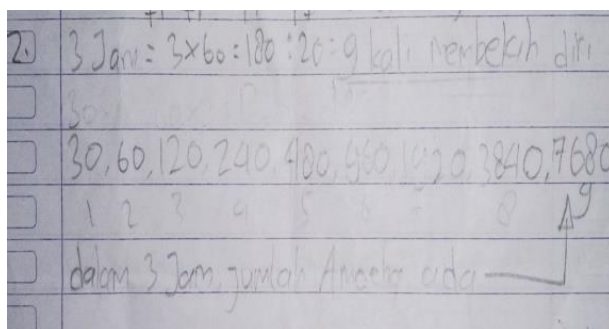 2. 3 Jam = 3x60 = 180 : 20 = 9 kali membelah diri
30, 60, 120, 240, 480, 960, 1920, 3840, 7680
1 2 3 4 5 6 7 8 9
dalam 3 Jam, jumlah Amoeba ada